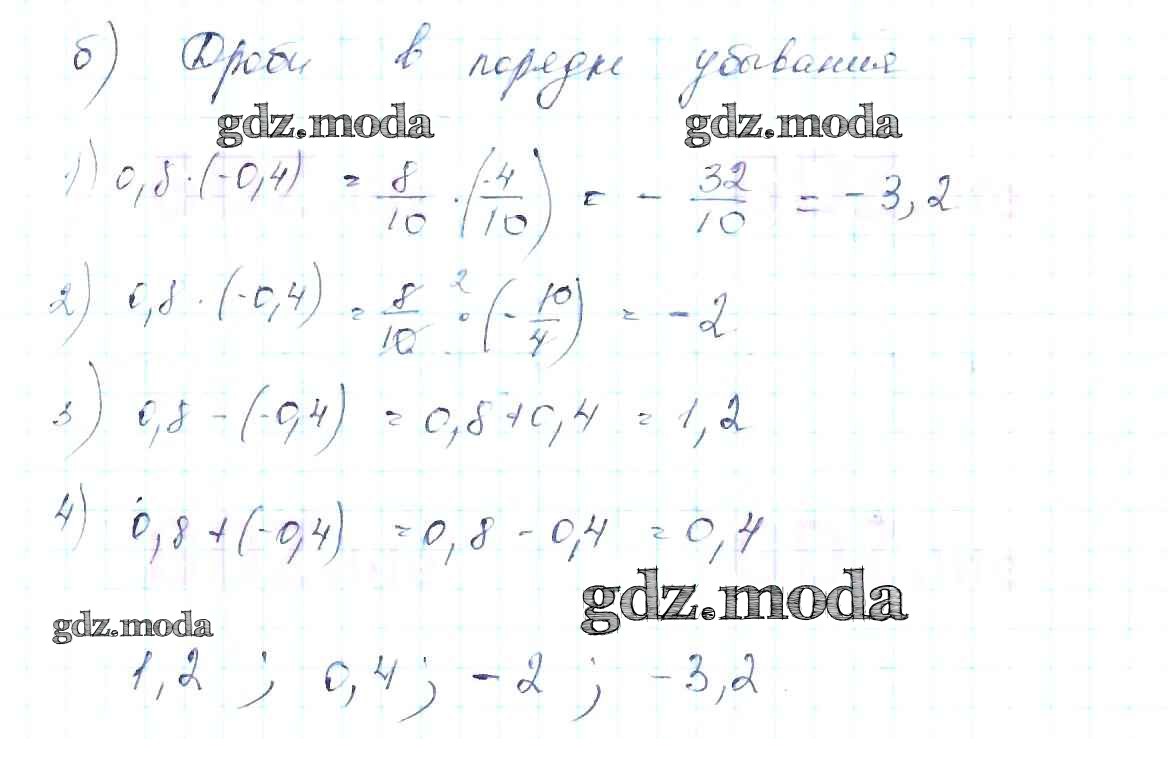 б) Дроби в порядке убывания
gdz.moda gdz.moda
1) 0,8·(-0,4) = 8/10 · (-4/10) = - 32/10 = -3,2
2) 0,8·(-0,4) = 8/10 · 2 (-10/4) = -2
3) 0,8-(-0,4) = 0,8+0,4 = 1,2
4) 0,8+(-0,4) = 0,8-0,4 = 0,4
gdz.moda gdz.moda
1,2 ; 0,4 ; -2 ; -3,2